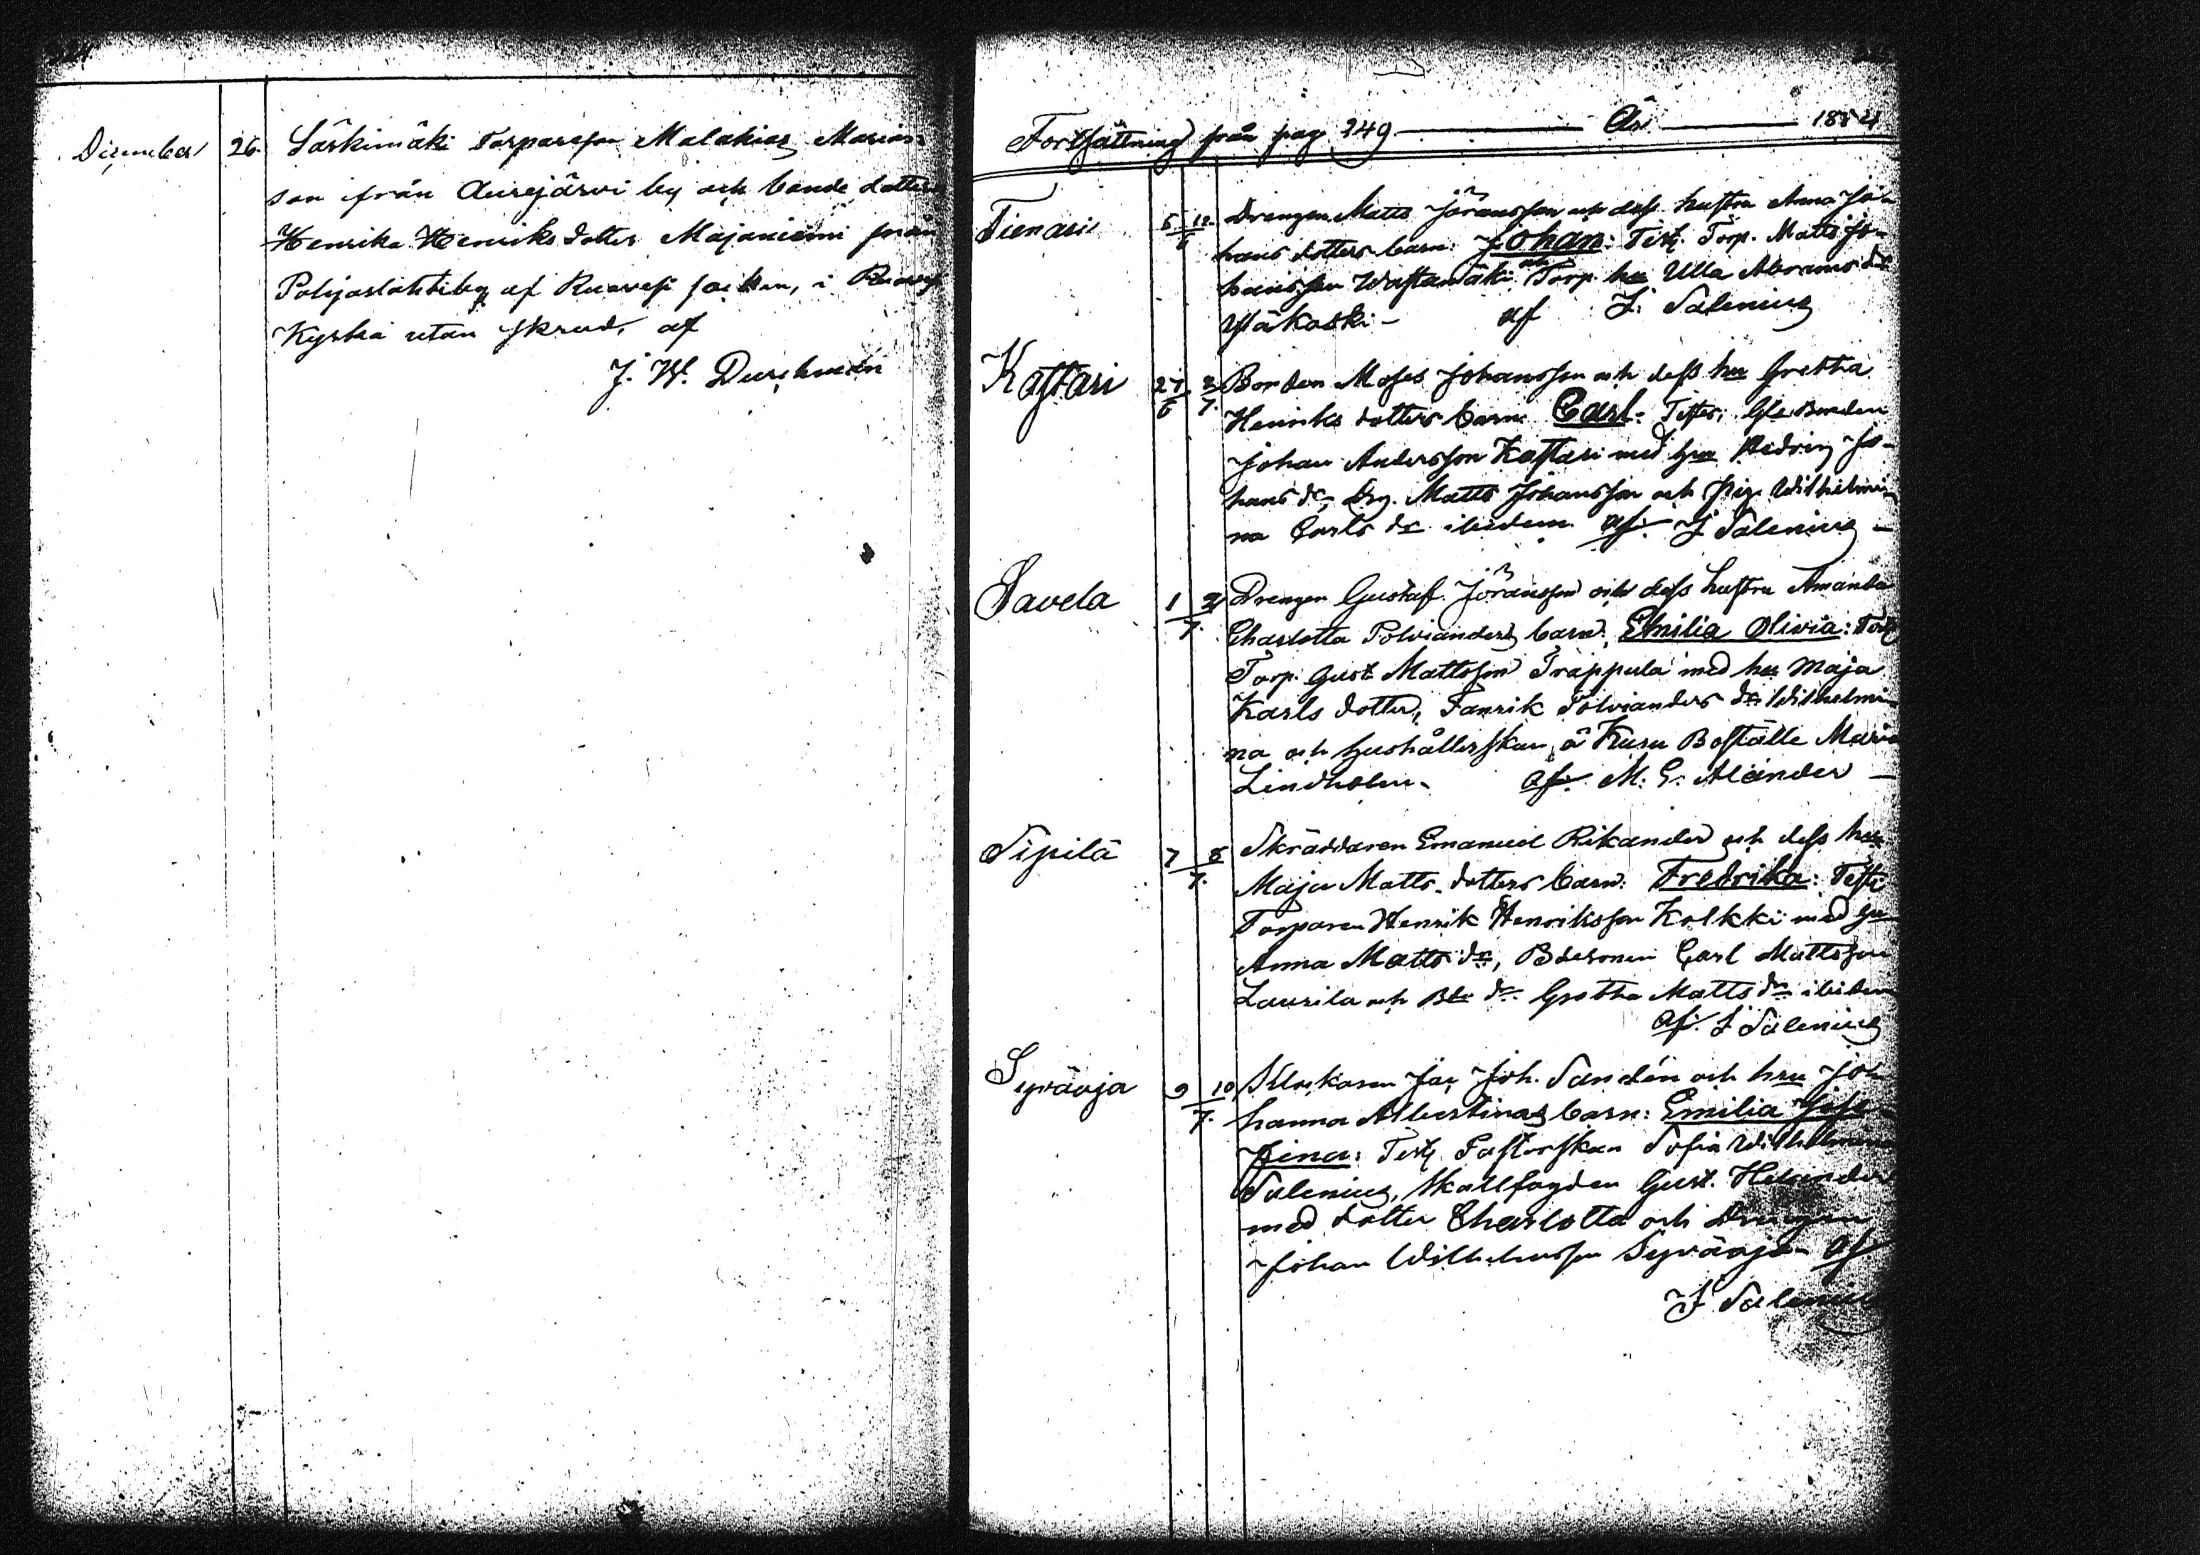 December 26. Särkimäki Torpareson Malakias Marias-
son ifrån Aurejärvi by och bonde dotter
Henrika Henriksdotter Majaniemi från
Pohjoslahti by af Ruovesi socken, i Ruovesi
Kyrka utan skrud. af
J. W. Durchman
Fortsättning från pag 249 År 1854
Tienari 5/6 12 Drengen Matts Jöransson och dess hustru Anna Jo-
hans dotters barn: Johan: Test. Torp. Matts Jo-
hansson Wastamäki och Torp. hu Ulla Abrams dr
Yläkoski - af J. Salenius
Kastari 27/6 2/7. Bonden Moses Johansson och dess hu Gretha
Henriks dotters barn Carl: Testes: Gle Bonden
Johan Andersson Kastari med hu Hedvig Jo-
hans dr, Drg. Matts Johansson och Pig. Wilhelmi-
na Carls dr ibidem af J Salenius -
Savela 1/7. 2 Drengen Gustaf Jöransson och dess hustru Amanda
Charlotta Polvianders barn: Emilia Olivia: Test
Torp. Gust Mattsson Trappula med hu Maja
Karls dotter, Fanrik Polvianders dr Wilhelmi-
na och Hushållerskan å Kuru Boställe Maria
Lindholm - af M. G. Alander -
Sipilä 7/7. 8 Skräddaren Emanuel Rikander och dess hu
Maja Matts dotters barn: Fredrika: Test:
Torparen Henrik Henriksson Kolkki med hu
Anna Matts dr, Bdesonen Carl Mattsson
Laurila och Bde dr Gretha Matts dr ibidem
af J Salenius
Syväoja 9/7. 10 Klockaren Joh. Sandén och hru Jo-
hanna Albertinas barn: Emilia Jose-
fina: Test Pastorskan Sofia Wilhelmina
Salenius, Skallfogden Gust. Helander
med dotter Charlotta och Drengen
Johan Wilhelmsson Syväoja - af
J Salenius